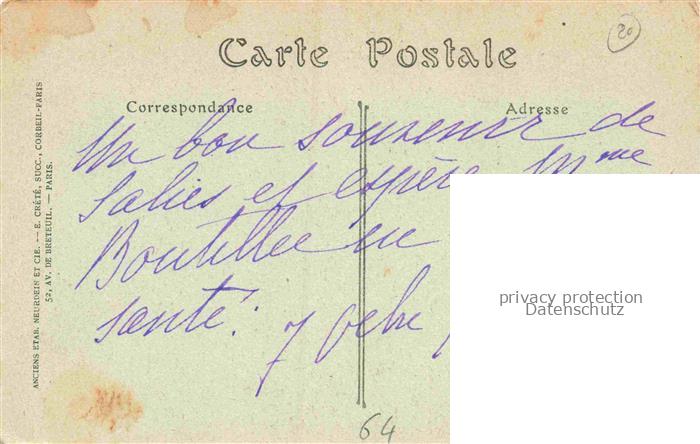 20
Carte Postale
Correspondance
Adresse
Un bon souvenir de
Salies et espère Mme
Boutillée en
santé.
64
ANCIENS ETAB. NEURDEIN ET CIE. — E. CRÉTÉ, SUCC., CORBEIL-PARIS
52, AV. DE BRETEUIL. — PARIS.
privacy protection
Datenschutz